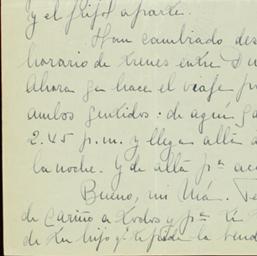 y el flete aparte.
Han cambiado des
horario de trenes entre
Ahora ya hace el viaje
ambos sentidos: de aquí
2.45 p.m. y llega allá a
la noche. Y de allá pª
Bueno, mi Má.
de Cariño a todos y pª ti
de tu hijo q' te pide la bend